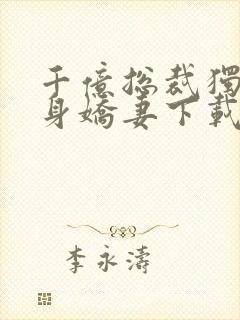 千億总裁獨
身嬌妻下載
李永濤